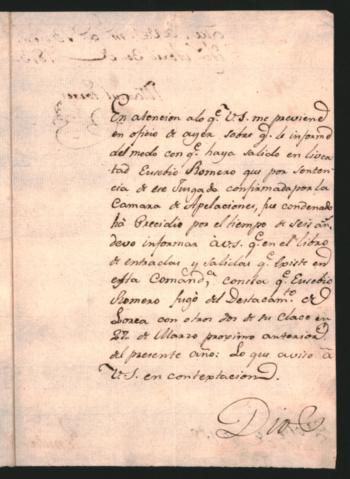 En atencion alo q.e V.S. me previene
en oficio de ayer sobre q.e le informe
del modo con q.e haya salido en liver
tad Eusebio Romero que por senten
cia de ese Jusgado confirmada por la
Camara de Apelaciones, fue condenado
ha Precidio por el tiempo de seis añ.s
devo informar a V.S. q.e en el libro
de entradas y salidas q.e Existe en
esta Comand.a consta q.e Eusebio
Romero fugo del Destacam.to de
Lorea con otros dos de su Clace en
22 de Marzo proximo anterior
del presente año: Lo que aviso a
V.S. en contextacion
Dio